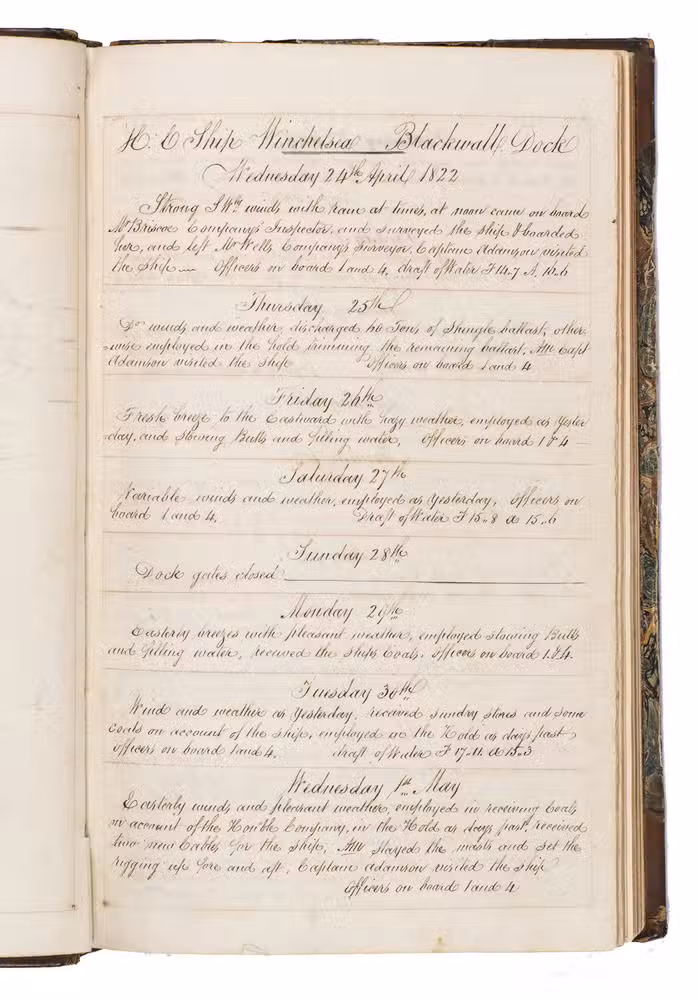 H. E Ship Winchelsea Blackwall Dock
Wednesday 24th April 1822
Strong SWly winds with rain at times, at noon came on board
Mr Briscoe Company's Inspector, and surveyed the ship & boarded
her, and left Mr Wells, Company's Surveyor, Captain Adamson visited
the Ship — Officers on board 1 and 4, draft of Water F 14.7 A. 16.6
Thursday 25th
Do winds and weather, discharged 60 Tons of Shingle ballast, other
wise employed in the hold trimming the remaining ballast, AM Capt
Adamson visited the Ship officers on board 1 and 4
Friday 26th
Fresh breeze to the Eastward with hazy weather, employed as Yester
day, and stowing Butts and filling water, Officers on board 1 & 4 —
Saturday 27th
Variable winds and weather, employed as Yesterday, Officers on
board 1 and 4. Draft of Water F 15..8 A 15..6
Sunday 28th
Dock gates closed
Monday 29th
Easterly breezes with pleasant weather, employed stowing Butts
and filling water, received the ships Coals. officers on board 1 & 4.
Tuesday 30th
Wind and weather as Yesterday, received sundry stores and some
Coals on account of the ship, employed in the Hold as days past
officers on board 1 and 4. draft of Water F 17..11. A 15..3
Wednesday 1st May
Easterly winds and pleasant weather, employed in receiving Coals
on account of the Honble Company, in the Hold as days past, received
two new Cables for the ship, AM stayed the masts and set the
rigging up fore and aft, Captain Adamson visited the ship
officers on board 1 and 4